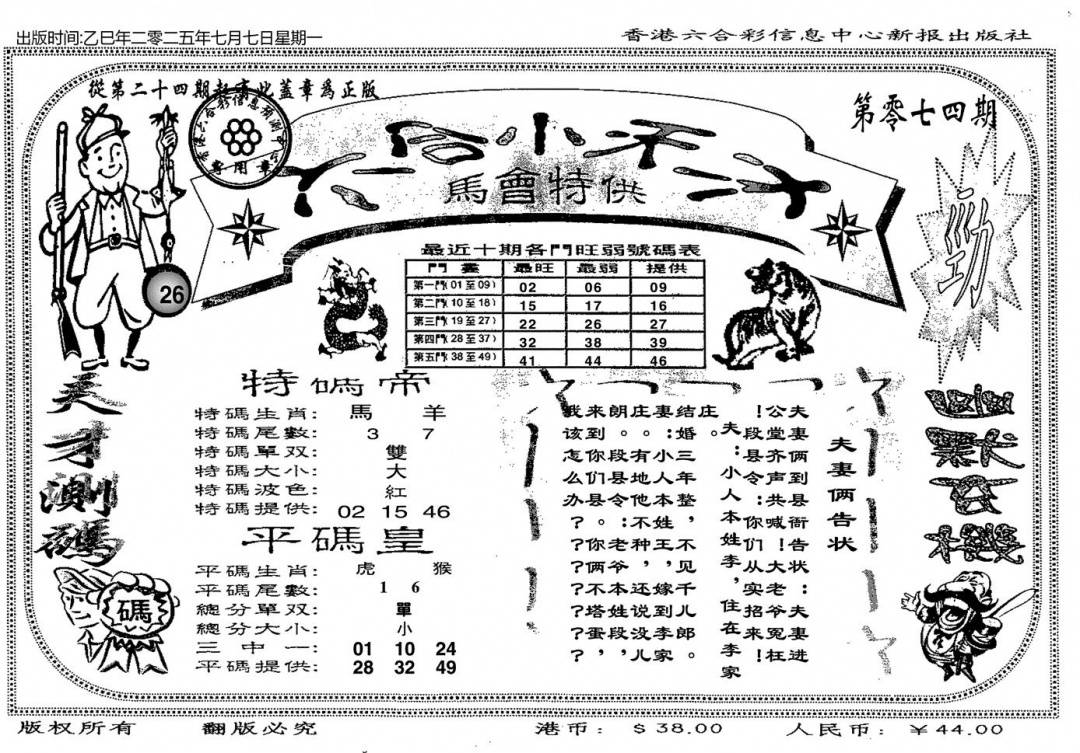 出版时间:乙巳年二零二五年七月七日星期一
香港六合彩信息中心新报出版社
從第二十四期起有此蓋章爲正版
第零七四期
專用章
六合小禾二次
馬會特供
勁
26
最近十期各門旺弱號碼表
門畫 最旺 最弱 提供
第一門(01至09) 02 06 09
第二門(10至18) 15 17 16
第三門(19至27) 22 26 27
第四門(28至37) 32 38 39
第五門(38至49) 41 44 46
天才测碼
特碼帝
特碼生肖: 馬 羊
特碼尾數: 3 7
特碼單双: 雙
特碼大小: 大
特碼波色: 紅
特碼提供: 02 15 46
平碼皇
平碼生肖: 虎 猴
平碼尾數: 1 6
總分單双: 單
總分大小: 小
三中一: 01 10 24
平碼提供: 28 32 49
碼
夫妻俩告状
夫妻俩到县衙告状:夫妻进
公堂齐声共喊!大老爷冤枉
!段县令:你们从实招来!
夫:小人本姓李,住在李家
庄。
结婚三年整,不见千儿郎。
妻:小人本姓王,嫁到李家
庄。有地他不种,还说没儿
朗。段县令:老爷本姓段,
来到你们县。你俩不塔蛋,
我该怎么办???????
幽默玄機
版权所有
翻版必究
港币: $38.00
人民币: ¥44.00